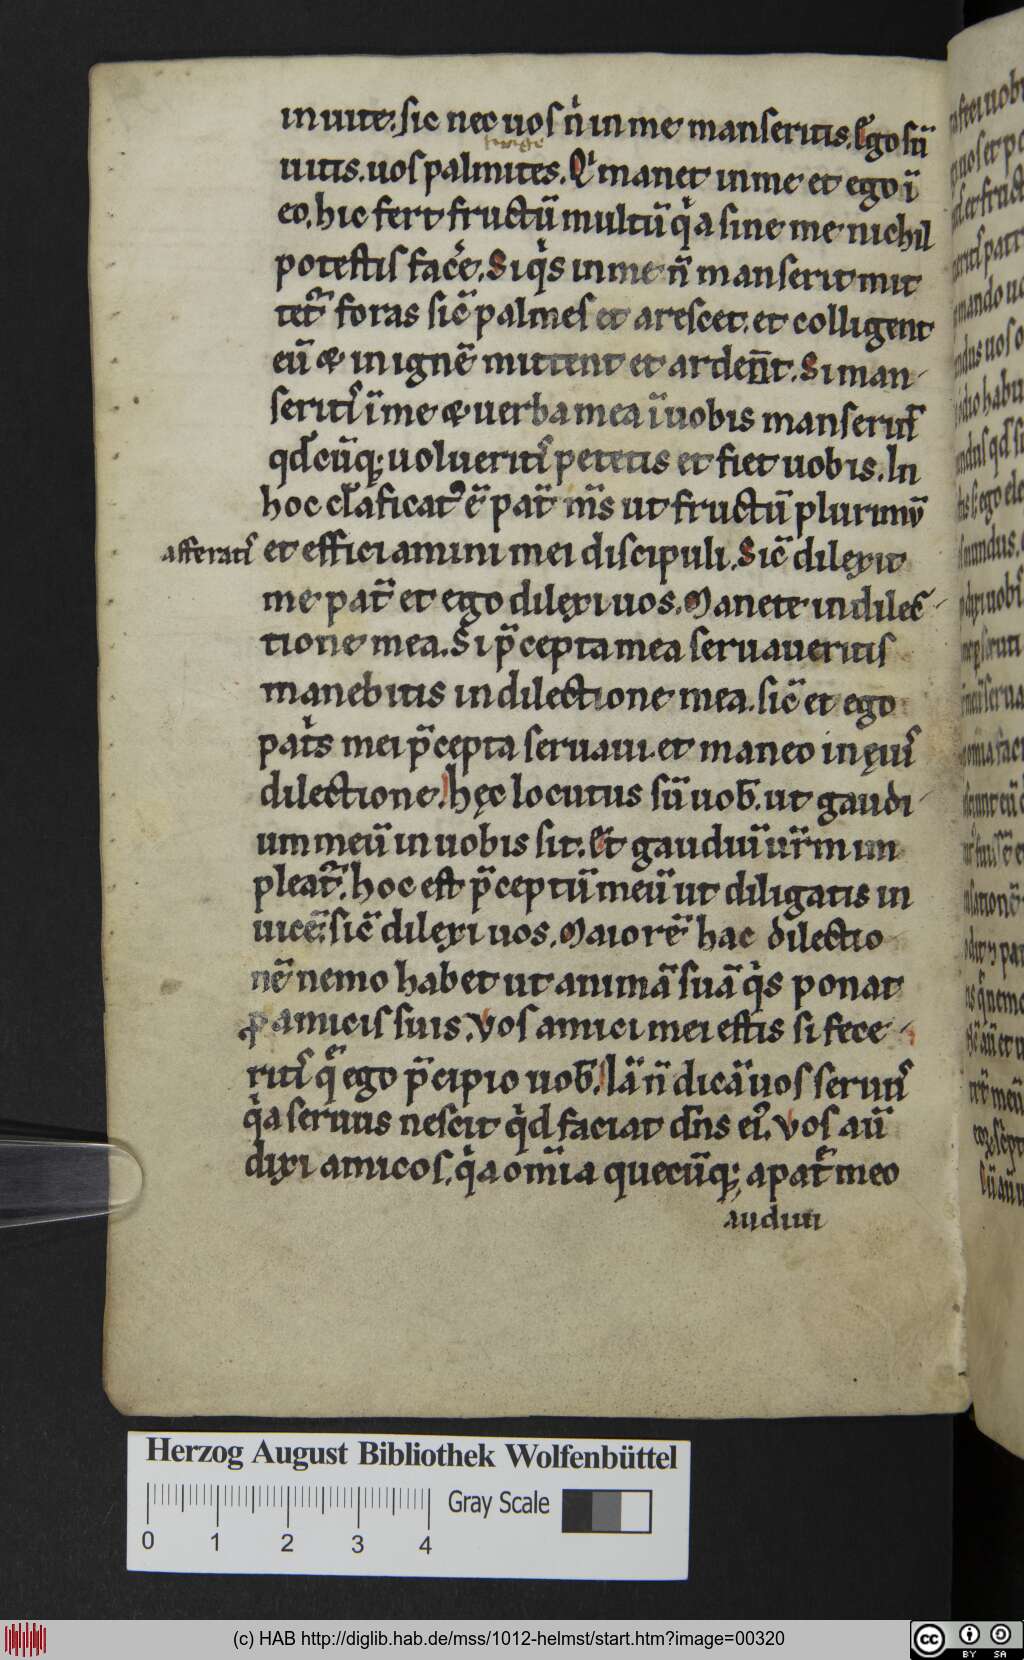 in uite. sic nec uos ń in me manseritis. Ego sū
uitis. uos palmites. Qͥ manet in me et ego ī
eo. hic fert fructū multū qͥa sine me nichil
potestis facͤe. Siqͥs in me n̄ manserit mit
tetᷣ foras sic̄ palmes et arescet. et colligent
eū & in ignē mittent et arden̄t. Si man-
seritᷤ ī me & uerba mea ī uobis manserīt
qd̄cūq; uolueritᷤ petetis et fiet uobis. In
hoc claͬificatᷣ ē pat̄ m̄s ut fructū plurimū
afferatᷤ et efficiamini mei discipuli. Sic̄ dilexit
me pat̄ et ego dilexi uos. Manete in dilec-
tione mea. Si p̄cepta mea seruaueritis
manebitis in dilectione mea. sic̄ et ego
patͥs mei p̄cepta seruaui. et maneo in ęiuᷤ
dilectione. hęc locutus sū uob̄. ut gaudi-
um meū in uobis sit. Et gaudiū ur̄m im
pleatᷣ. hoc est p̄ceptū meū ut diligatis in
uicē. sic̄ dilexi uos. Maiorē hac dilectio
nē nemo habet ut animā suā qͥs ponat
ꝓ amicis suis. Vos amici mei estis si fece-
ritᷤ q̄ ego p̄cipio uob̄. Iā n̄ dicā uos seruuᷤ
qͥa seruus nescit qͥd faciat dn̄s eiꝰ. Vos aū
dixi amicos. qͥa om̄ia quecūq; a patͤ meo
audiui
Herzog August Bibliothek Wolfenbüttel
Gray Scale
0 1 2 3 4
(c) HAB http://diglib.hab.de/mss/1012-helmst/start.htm?image=00320
cc BY SA